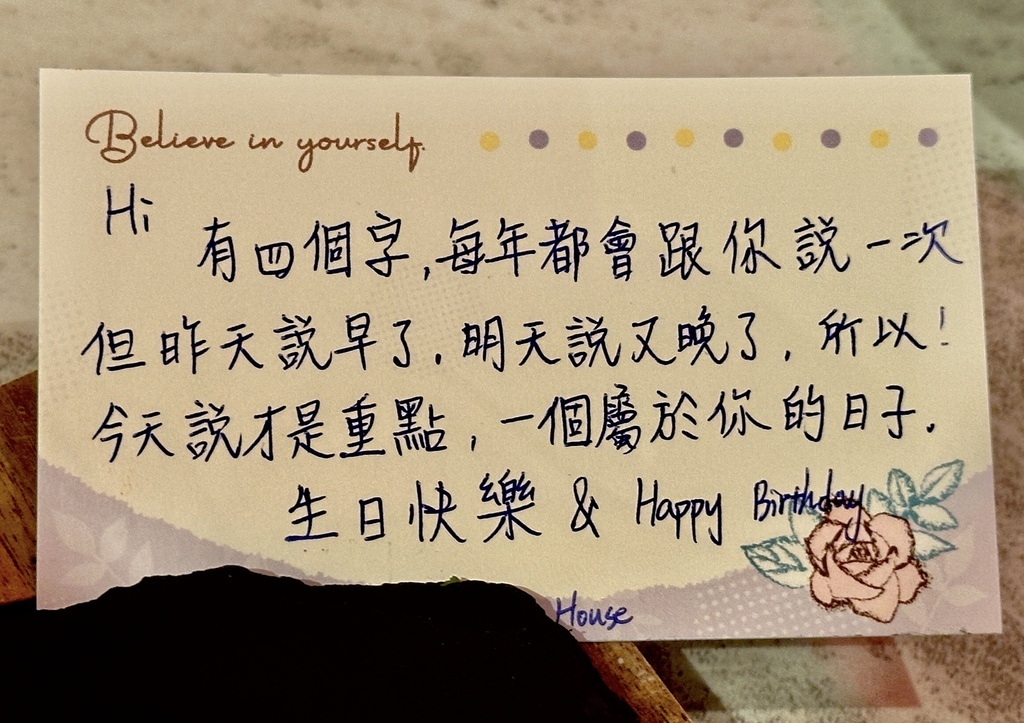 Believe in yourself.
Hi
有四個字,每年都會跟你説一次
但昨天説早了.明天説又晚了,所以!
今天説才是重點,一個屬於你的日子.
生日快樂 & Happy Birthday
House